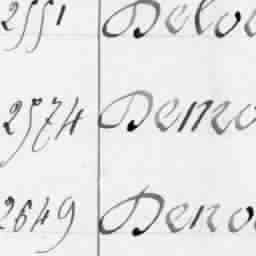 2551 Delo
2574 Demo
2649 Deno